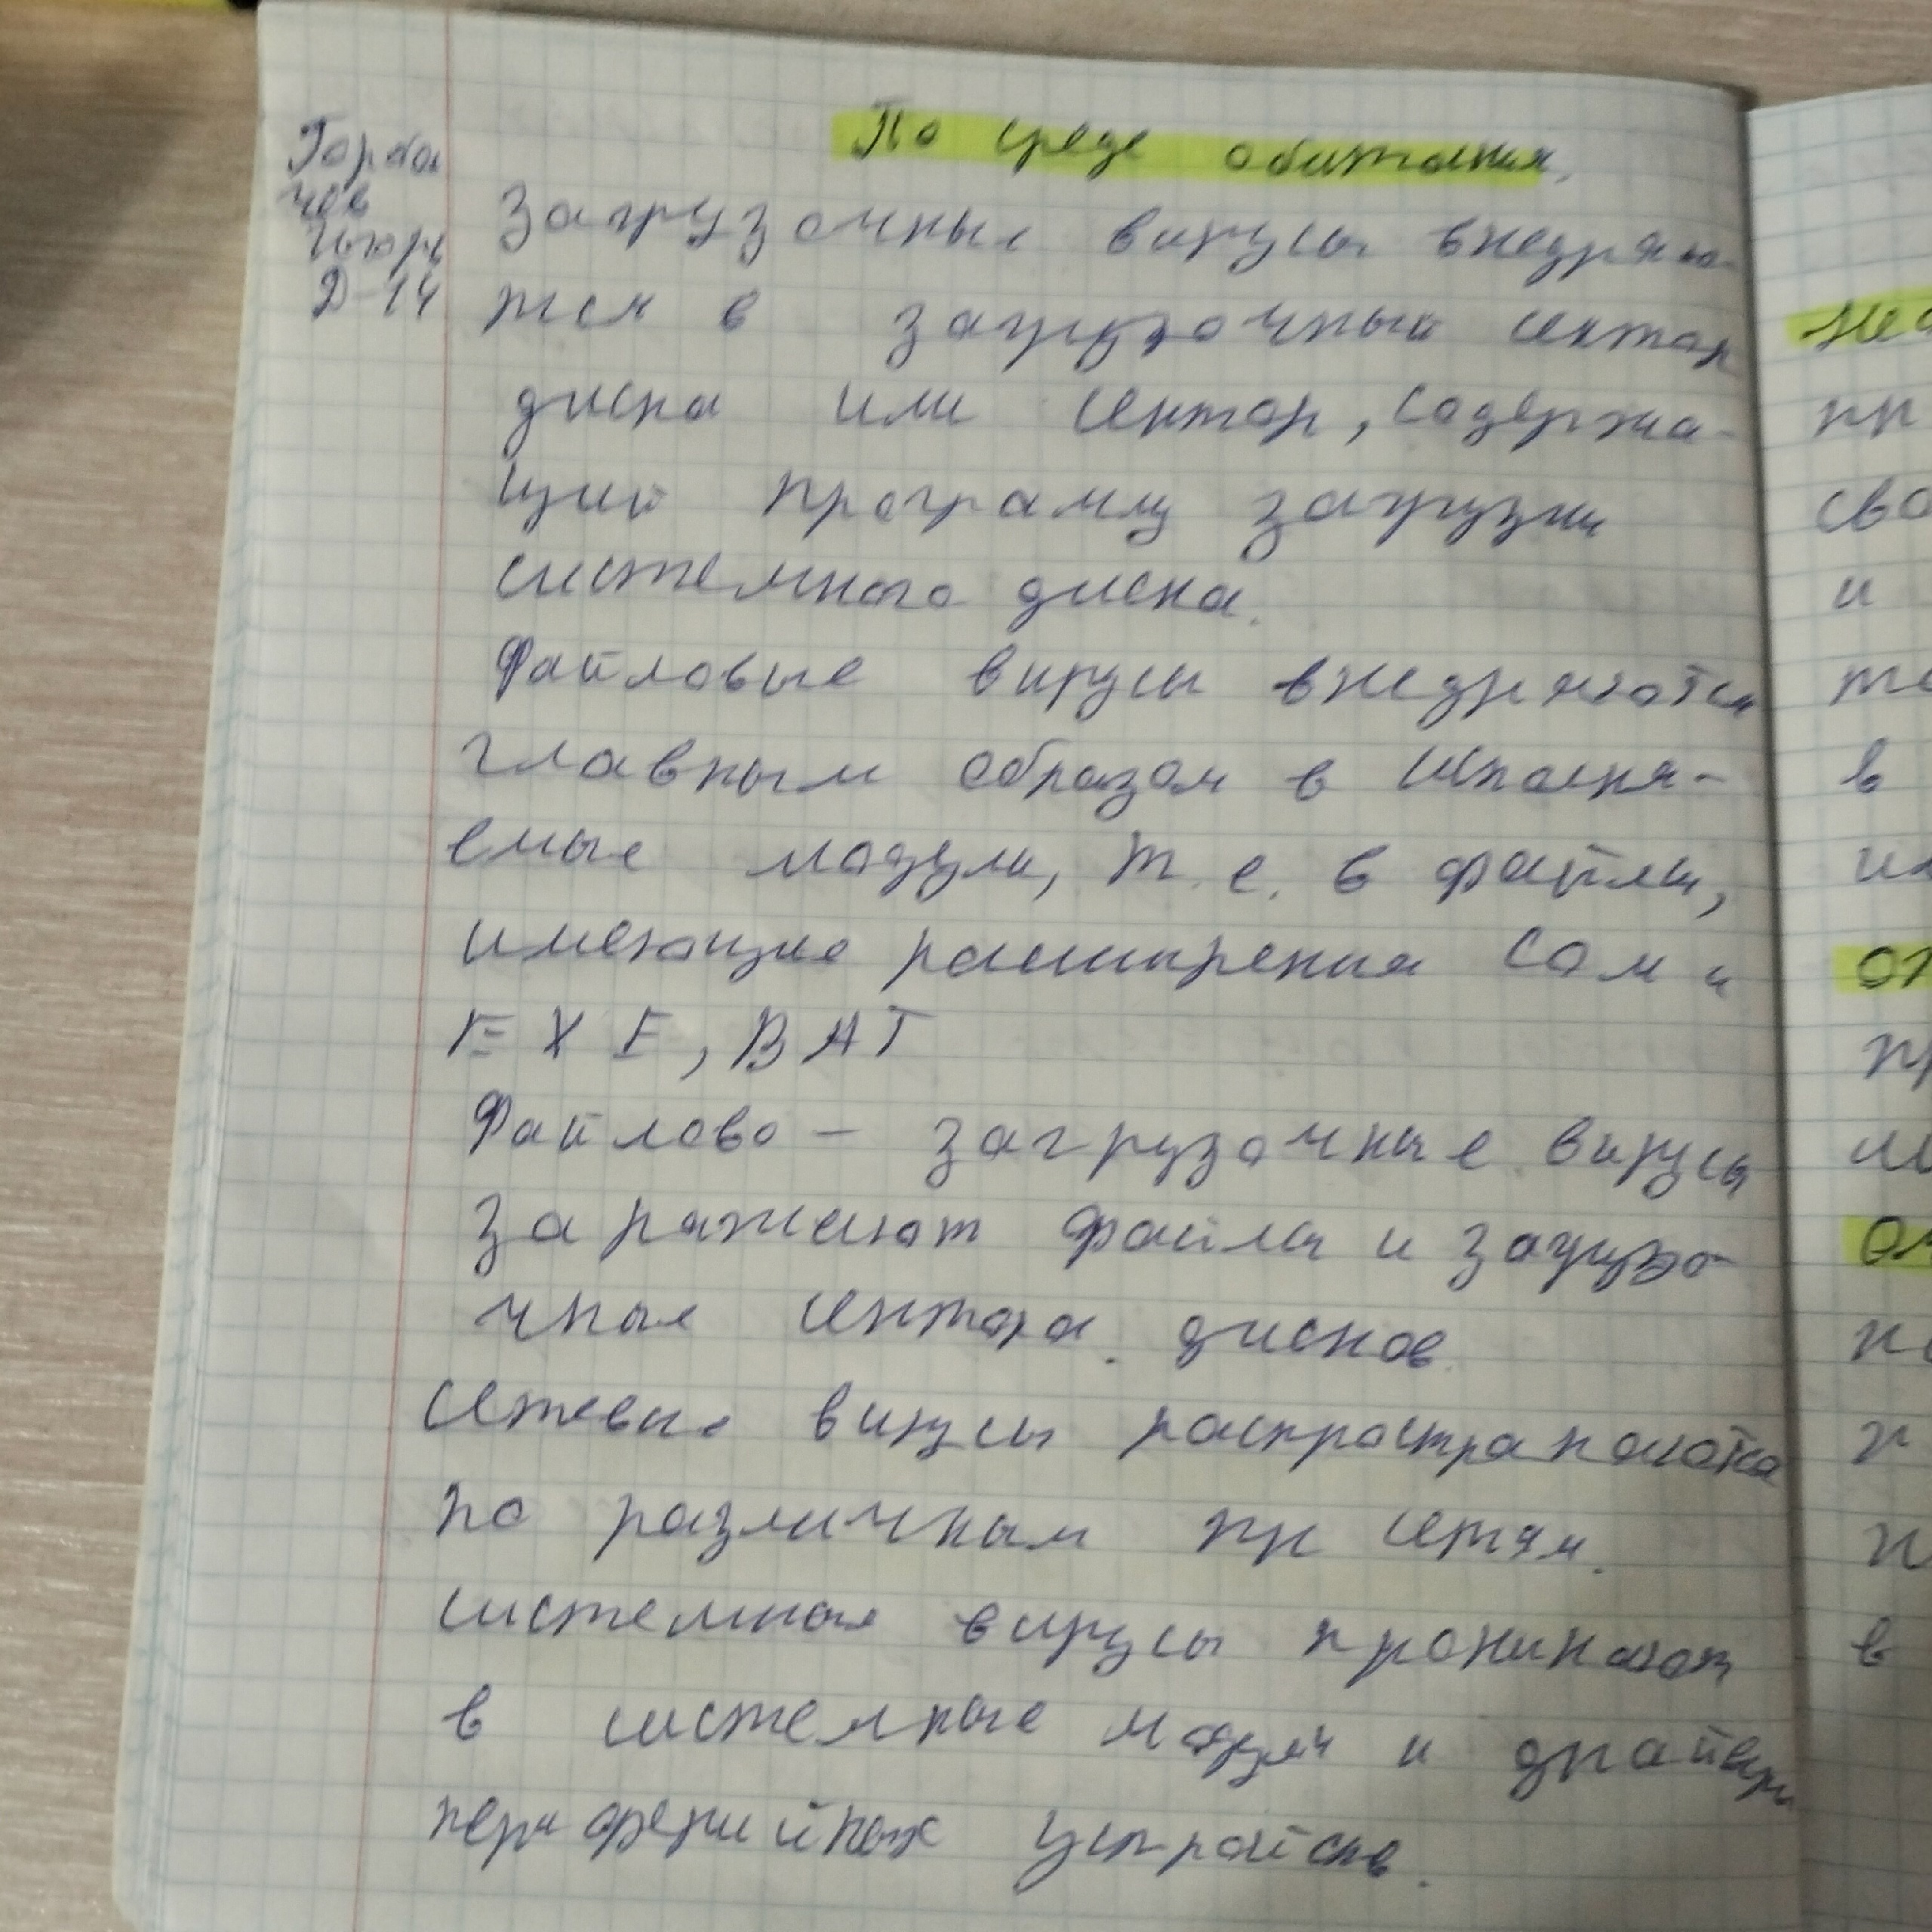 По среде обитания.
Горба
чев
Игорь
Д-14
Загрузочные вирусы внедряю-
тся в загрузочный сектор
диска или сектор, содержа-
щий програму загрузки
системного диска.
Файловые вирусы внедряются
главным образом в исполня-
емые модули, т. е. в файлы,
имеющие расширения COM и
EXE, BAT
Файлово - загрузочные вирусы
заражают файлы и загрузо-
чные сектора дисков.
Сетевые вирусы распространяются
по различным сетям.
системные вирусы проникают
в системные модули и драйверы
периферийных устройств.
пр
сво
и
в